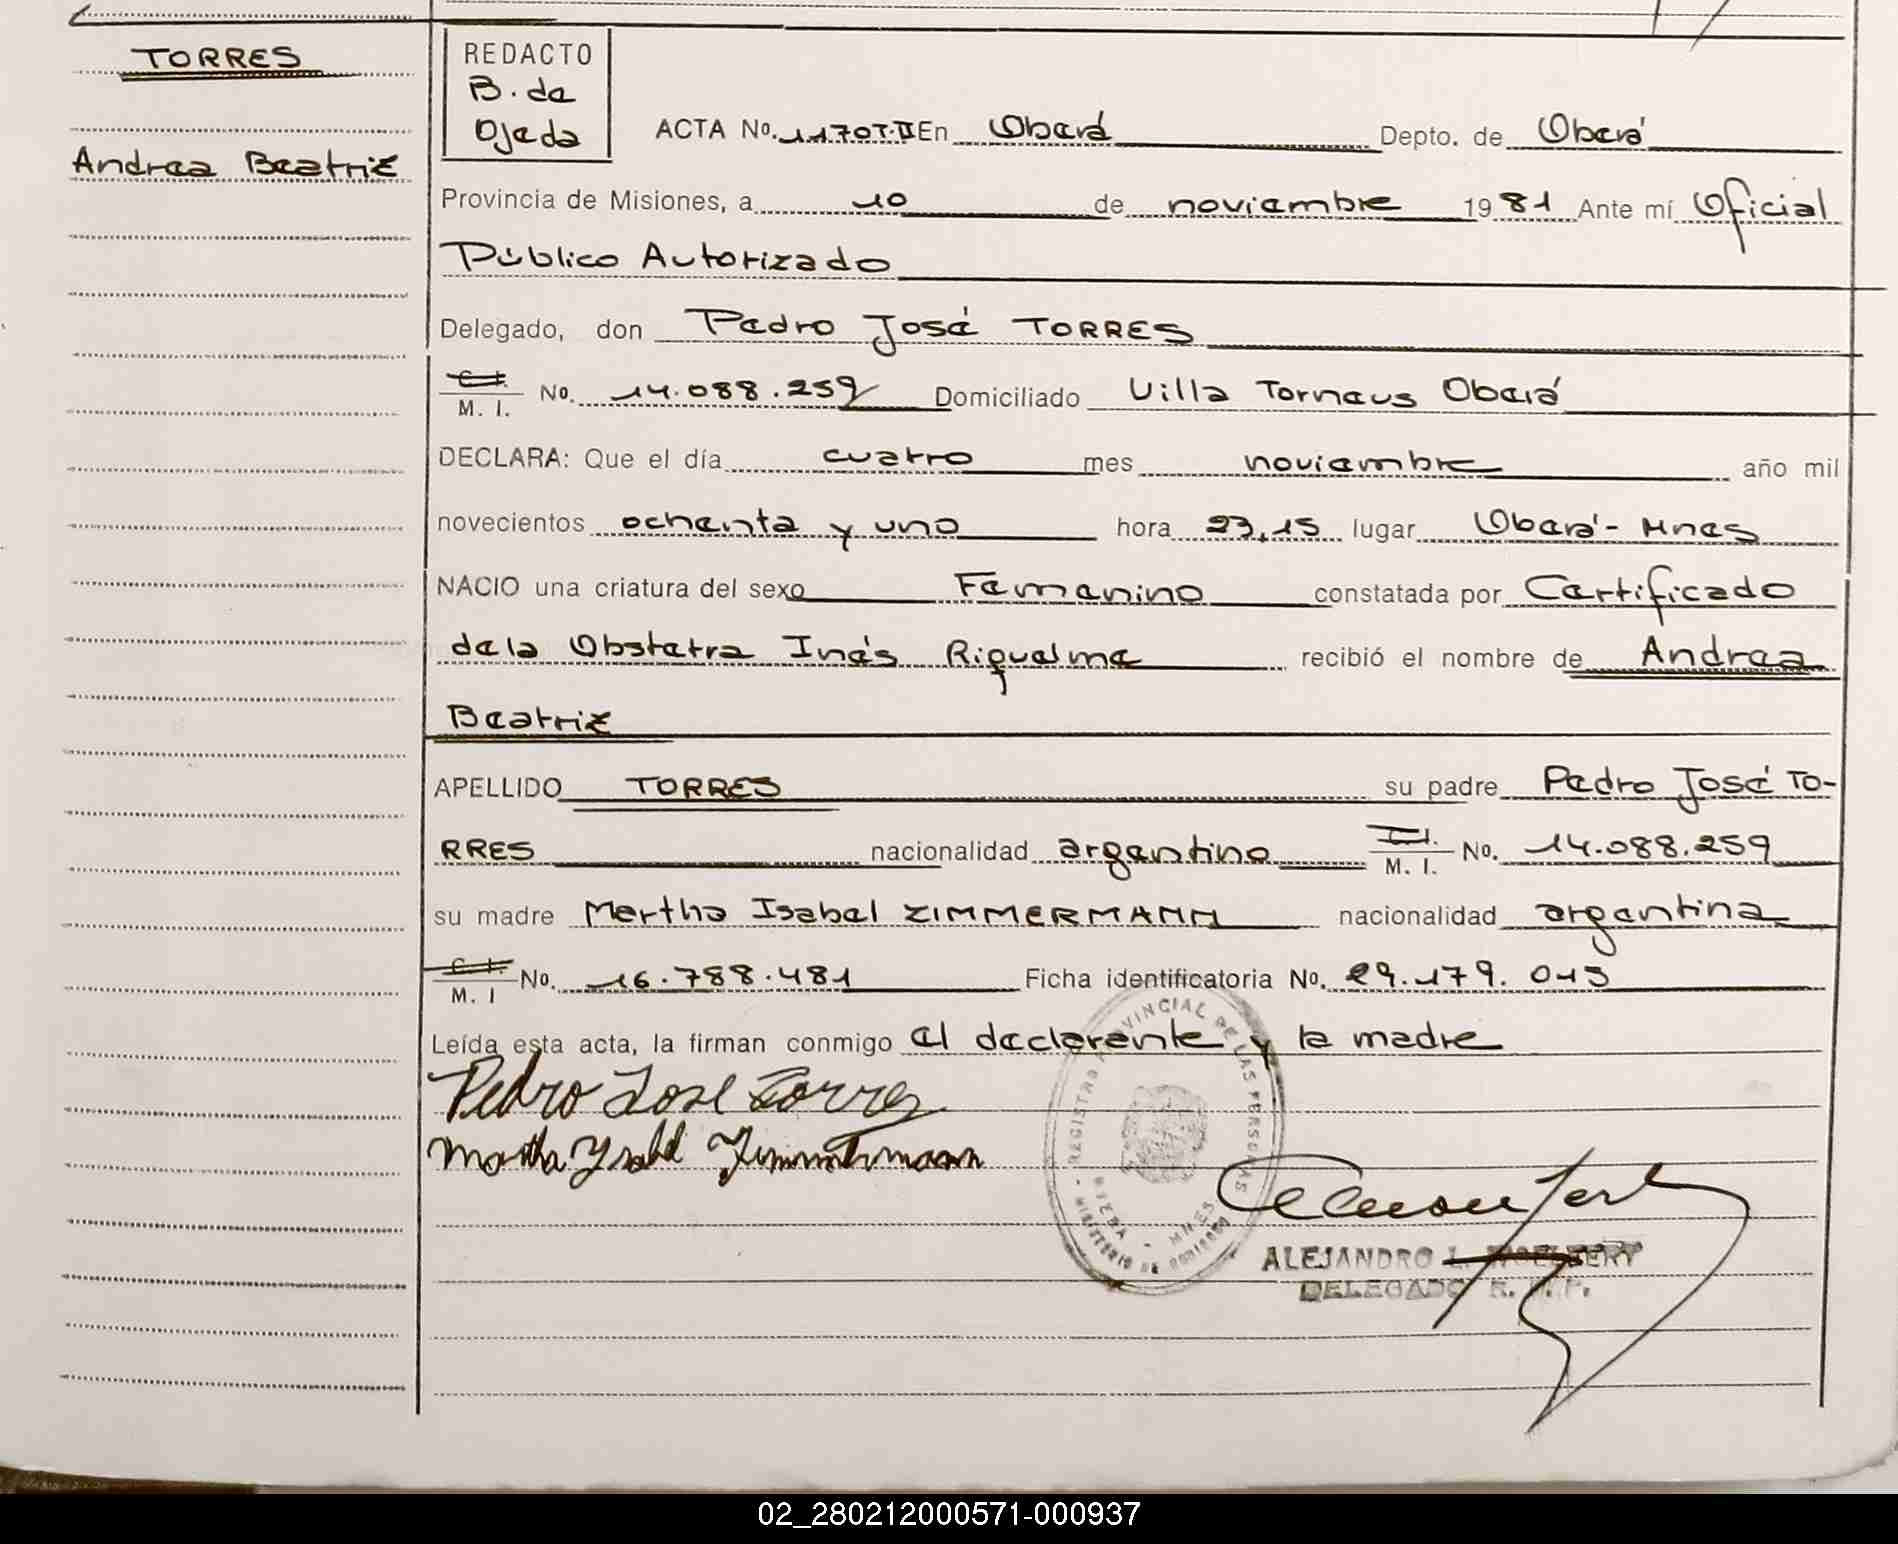 TORRES
Andrea Beatriz
REDACTO
B. de
Ojeda
ACTA No. 1170T.II En Oberá Depto. de Oberá
Provincia de Misiones, a 10 de noviembre 1981 Ante mí Oficial
Público Autorizado
Delegado, don Pedro José TORRES
C. I.
M. I. No. 14.088.259 Domiciliado Villa Torneus Oberá
DECLARA: Que el día cuatro mes noviembre año mil
novecientos ochenta y uno hora 23,15 lugar Oberá - Mnes
NACIO una criatura del sexo Femenino constatada por Certificado
de la Obstetra Inés Riquelme recibió el nombre de Andrea
Beatriz
APELLIDO TORRES su padre Pedro José TO-
RRES nacionalidad argentino C. I.
M. I. No. 14.088.259
su madre Martha Isabel ZIMMERMANN nacionalidad argentina
C. I.
M. I No. 16.788.481 Ficha identificatoria No. 29.179.015
Leída esta acta, la firman conmigo el declarante y la madre
Pedro Jose Torres
Martha Ysabel Zimmermann
REGISTRO PROVINCIAL DE LAS PERSONAS
MINISTERIO DE GOBIERNO
OBERA - MNES
ALEJANDRO L.
DELEGADO R. P. P.
02_280212000571-000937